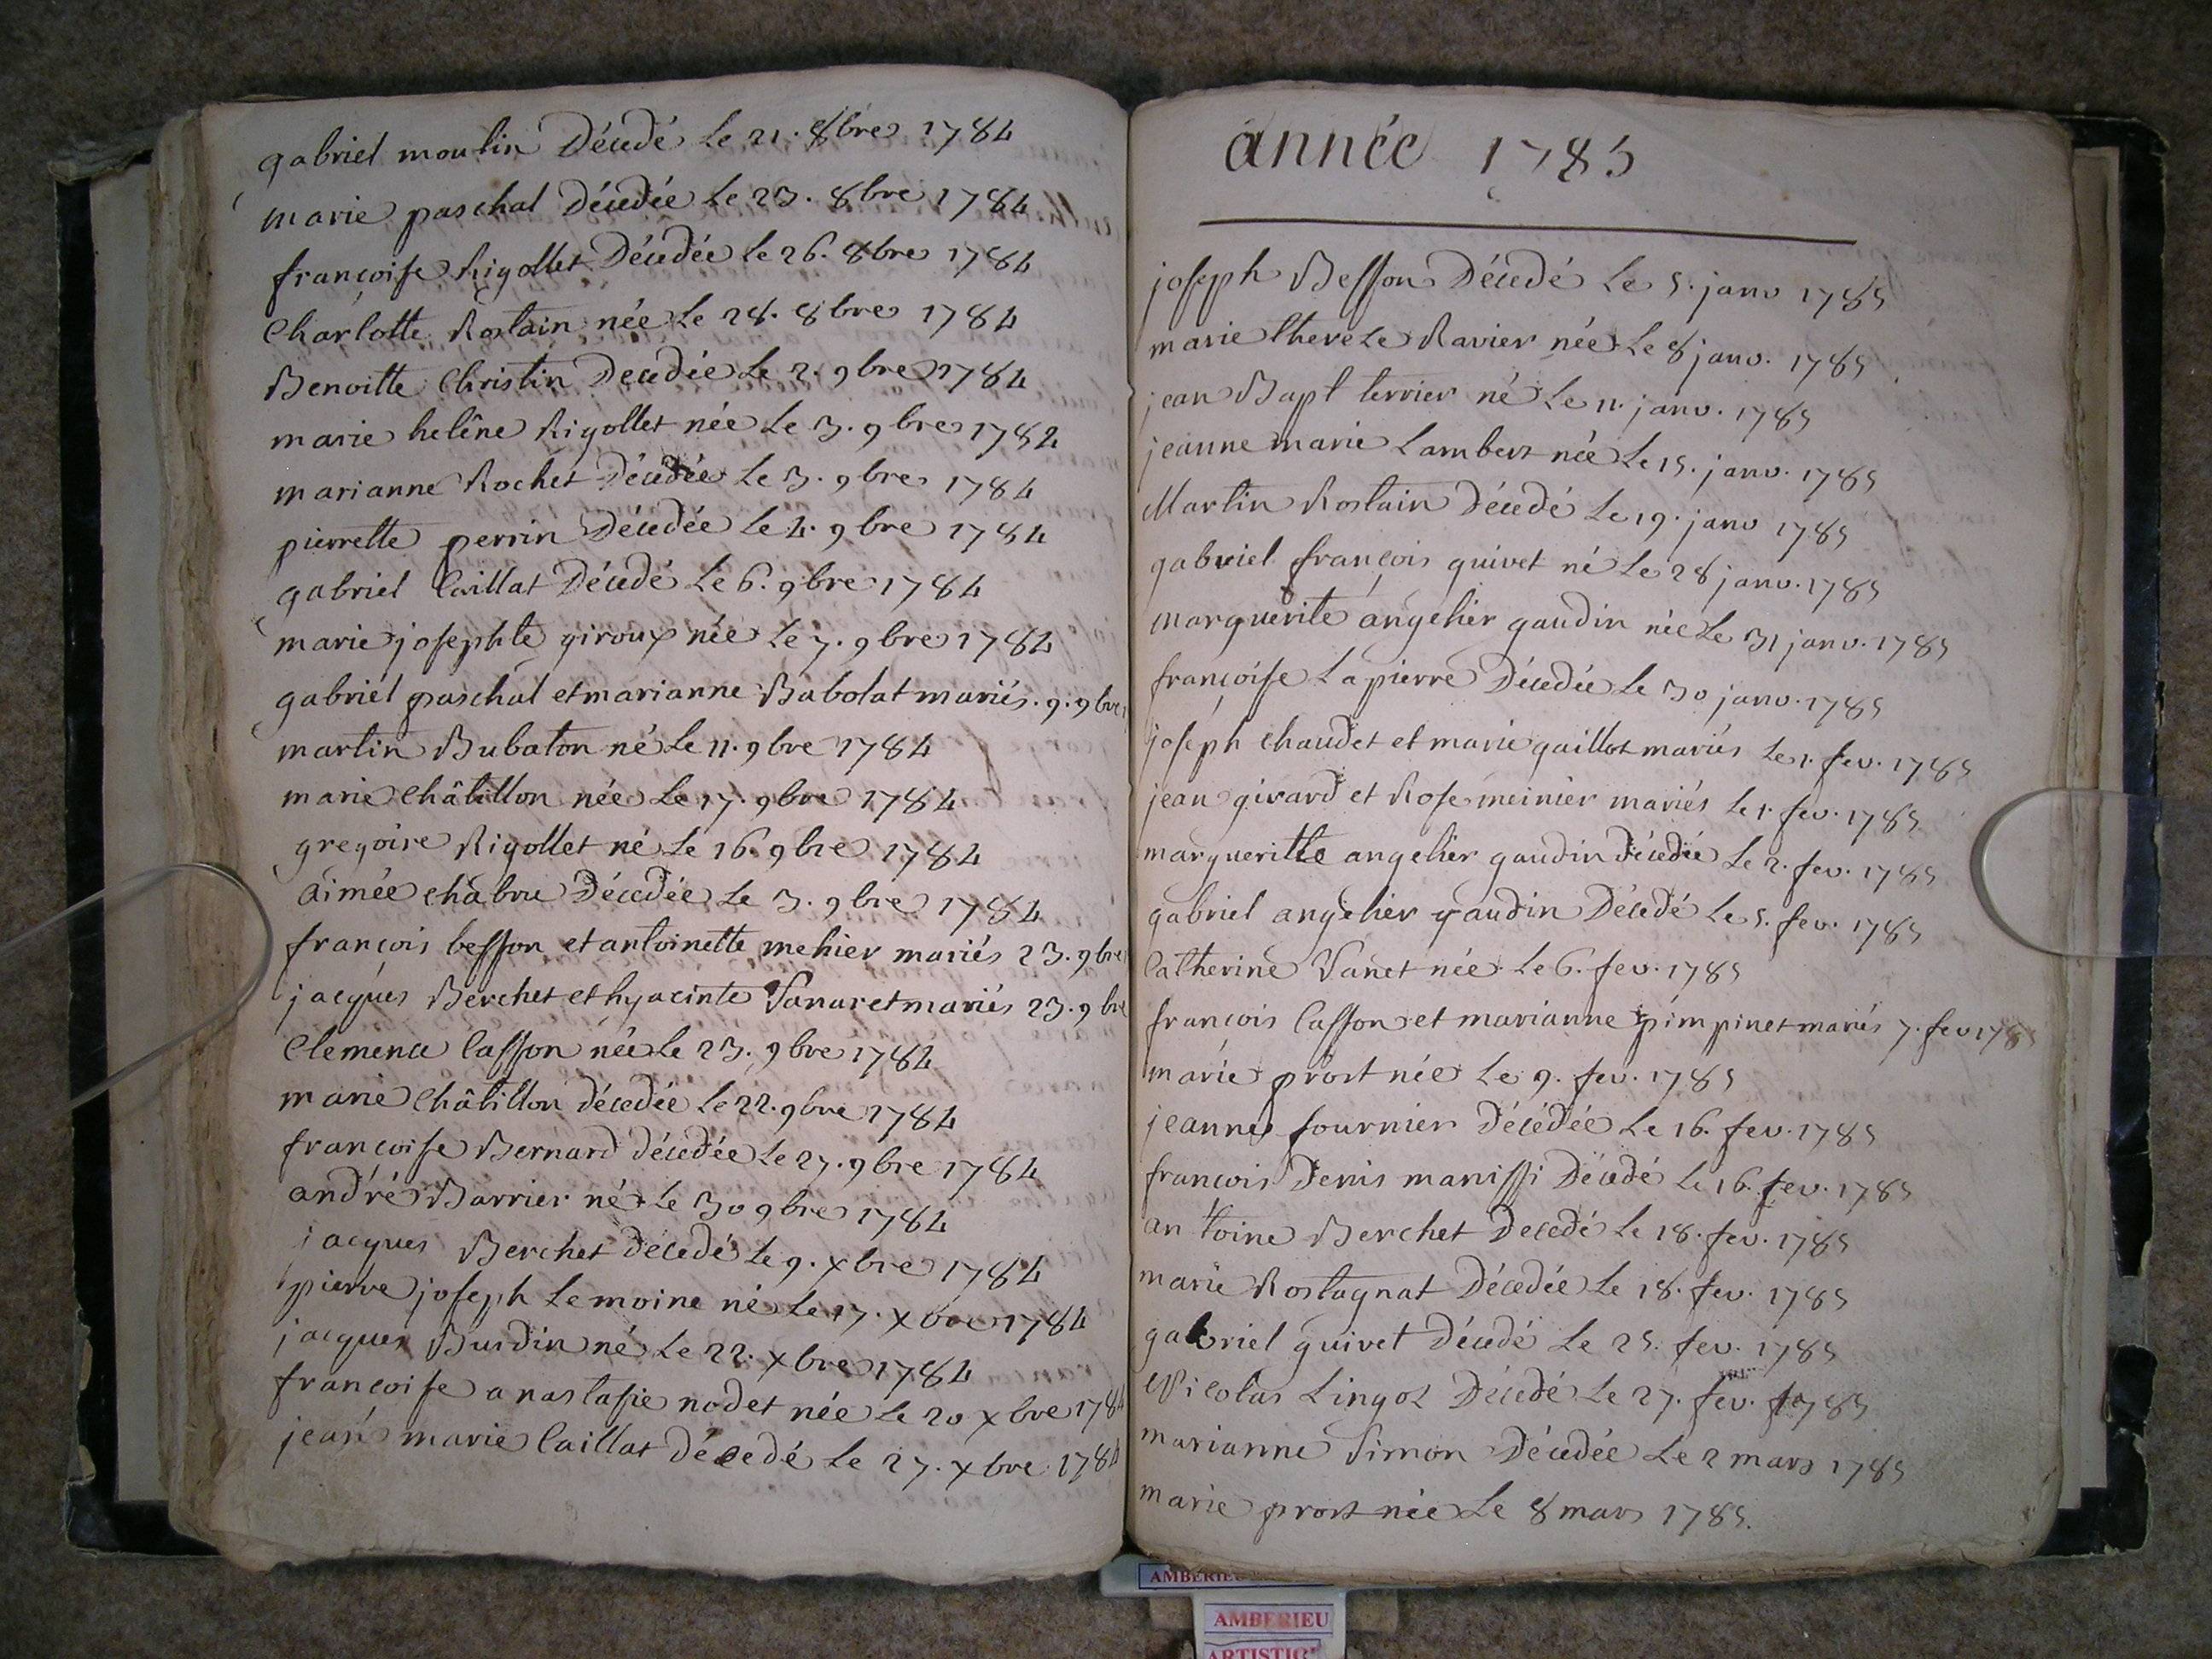 gabriel moulin Décedé Le 21. 8bre 1784
marie paschal Décedée Le 23. 8bre 1784
françoise Rigollet Décedée le 26. 8bre 1784
Charlotte Rostain née Le 28. 8bre 1784
Benoitte Christin Decedée Le 2. 9bre 1784
marie helêne Rigollet née Le 3. 9bre 1784
marianne Rochet Décedée Le 3. 9bre 1784
pierrette perrin Décedée Le 4. 9bre 1784
gabriel Caillat Décedé Le 6. 9bre 1784
marie josephte giroux née Le 7. 9bre 1784
gabriel paschal et marianne Babolat mariés. 9. 9bre
martin Bubaton né Le 11. 9bre 1784
marie Châtillon née Le 17. 9bre 1784
gregoire Rigollet né Le 16. 9bre 1784
aimée chabou Décedée Le 3. 9bre 1784
françois besson et antoinette mehier mariés 23. 9bre
jacques Berchet et hyacinte Vanaret mariés 23. 9bre
Clemence Casson née Le 23. 9bre 1784
marie Châtillon décedée Le 22. 9bre 1784
françoise Bernard décedée Le 27. 9bre 1784
andré Barrier né Le 30 9bre 1784
jacques Berchet décedé Le 9. xbre 1784
pierre joseph Lemoine né Le 17. xbre 1784
jacques Burdin né Le 22. xbre 1784
françoise anastasie nodet née Le 20 xbre 1784
jean marie Caillat décedé Le 27. xbre 1784
année 1785
joseph Besson Décedé Le 5. janv 1785
marie therese Ravier née Le 8 janv. 1785
jean Bapt terrier né Le 11. janv. 1785
jeanne marie Lambert née Le 15. janv. 1785
Martin Rostain Décedé Le 19. janv 1785
gabriel françois guivet né Le 28 janv. 1785
marguerite angelier gaudin née Le 31 janv. 1785
françoise Lapierre Décedée Le 30 janv. 1785
joseph chaudet et marie gaillot mariés Le 1. fev. 1785
jean girard et Rose meinier mariés le 1. fev. 1785
margueritte angelier gaudin décedée Le 2. fev. 1785
gabriel angelier gaudin Décedé Le 5. fev. 1785
Catherine Vanet née Le 6. fev. 1785
françois Casson et marianne pimpinet mariés 7. fev 178
marie prost née Le 9. fev. 1785
jeanne fournier décédée Le 16. fev. 1785
françois Denis manissi Décedé Le 16. fev. 1785
antoine Berchet Decedé Le 18. fev. 1785
marie Rostagnat Décedée Le 18. fev. 1785
gabriel guivet Décedé Le 25. fev. 1785
Nicolas Lingot Décedé Le 27. fev. 1785
marianne Simon Décedée Le 2 mars 1785
marie prost née Le 8 mars 1785.
AMBERIEU
ARTISTIQ